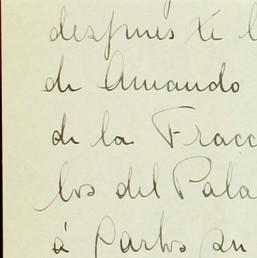 despues
de Amando
de la Fracc
los del Pala
á Carlos su